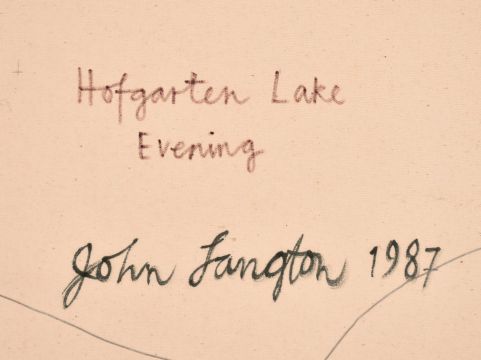 Hofgarten Lake
Evening
John Langton 1987